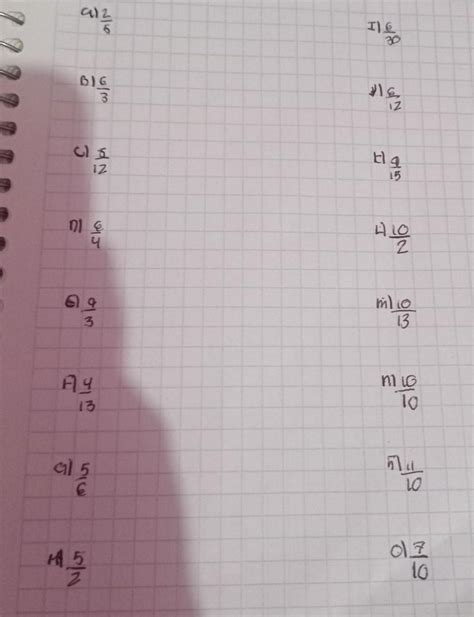 a) 2/6
B) 6/3
C) 8/12
D) 6/4
E) 9/3
F) 4/13
G) 5/6
H) 5/2
I) 6/30
J) 6/12
K) 9/15
L) 10/2
m) 10/13
n) 10/10
ñ) 11/10
O) 7/10